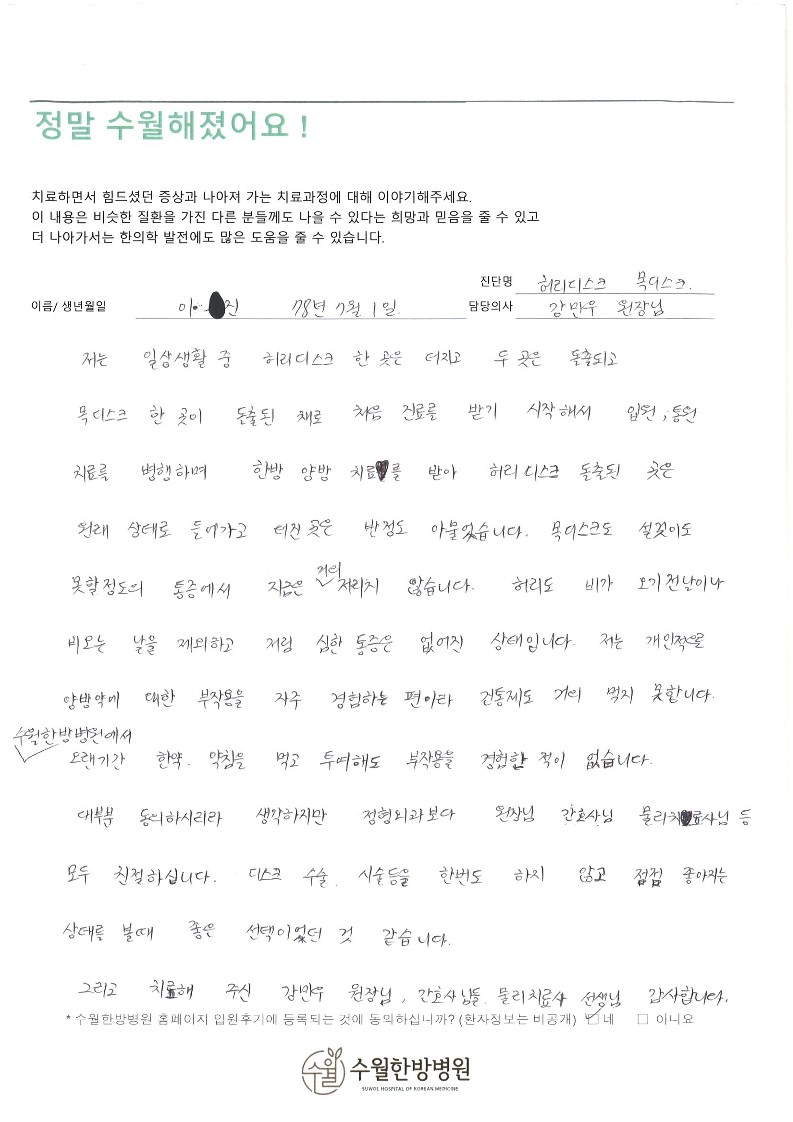 정말 수월해졌어요 !
치료하면서 힘드셨던 증상과 나아져 가는 치료과정에 대해 이야기해주세요.
이 내용은 비슷한 질환을 가진 다른 분들께도 나을 수 있다는 희망과 믿음을 줄 수 있고
더 나아가서는 한의학 발전에도 많은 도움을 줄 수 있습니다.
진단명 허리디스크 목디스크.
이름/ 생년월일 이 진 78년 7월 1일. 담당의사 강민우 원장님
저는 일상생활 중 허리디스크 한 곳은 터지고 두 곳은 돌출되고
목디스크 한 곳이 돌출된 채로 처음 진료를 받기 시작해서 입원, 통원
치료를 병행하며 한방 양방 치료를 받아 허리디스크 돌출된 곳은
원래 상태로 들어가고 터진 곳은 반정도 아물었습니다. 목디스크도 설겆이도
못할정도의 통증에서 지금은 거의 저리지 않습니다. 허리도 비가 오기전날이나
비오는 날을 제외하고 저림 심한 통증은 없어진 상태입니다. 저는 개인적으로
양방약에 대한 부작용을 자주 경험하는 편이라 진통제도 거의 먹지 못합니다.
수월한방병원에서
오랜기간 한약. 약침을 먹고 투여해도 부작용을 경험한 적이 없습니다.
대부분 동의하시리라 생각하지만 정형외과보다 원장님 간호사님 물리치료사님 등
모두 친절하십니다. 디스크 수술. 시술등을 한번도 하지 않고 점점 좋아지는
상태를 볼때 좋은 선택이었던 것 같습니다.
그리고 치료해 주신 강민우 원장님, 간호사님들. 물리치료사 선생님 감사합니다.
* 수월한방병원 홈페이지 입원후기에 등록되는 것에 동의하십니까? (환자정보는 비공개) ☑ 네 □ 아니요
수월 수월한방병원
SUWOL HOSPITAL OF KOREAN MEDICINE